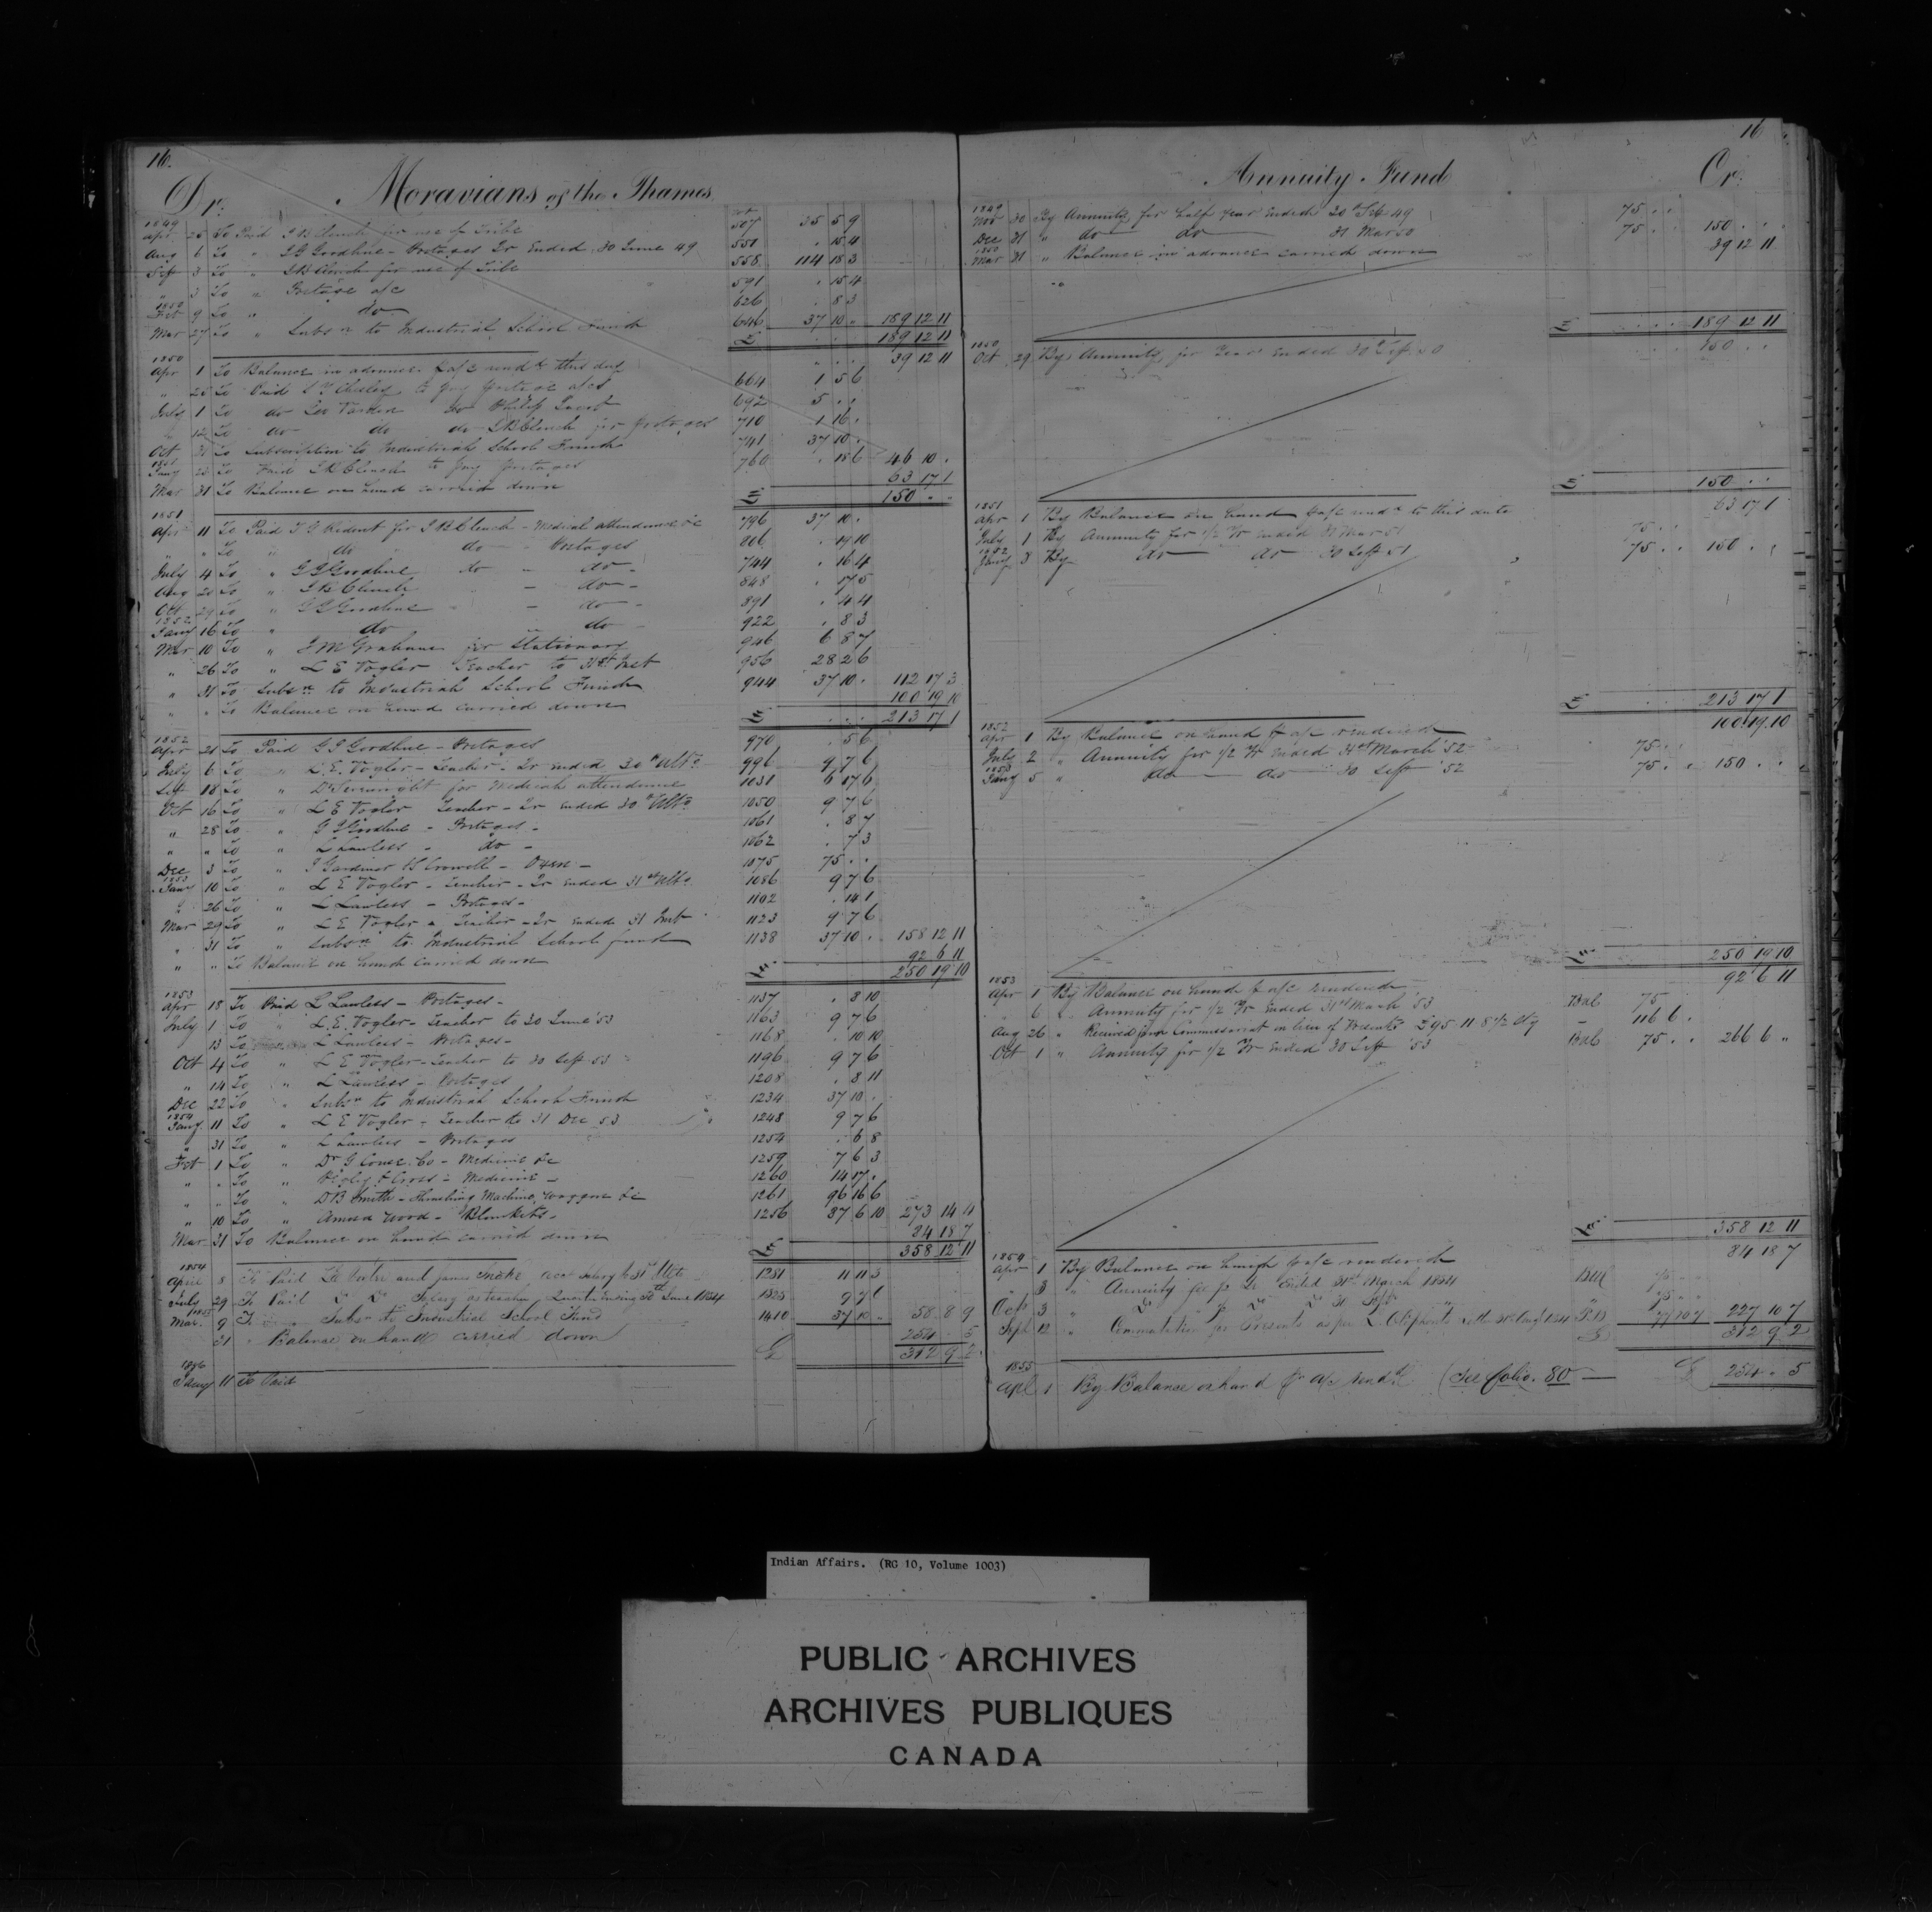 16.
Dr. Moravians of the Thames
1849
Apr 25 To Paid J B Clench for use of Tribe 507 35 5 9
Aug 6 To " G J Goodhue - Postages Qr Ended 30 June 49 551 . 15 4
Sept 3 To " J B Clench for use of Tribe 558 114 18 3
" 3 To " Postage a/c 591 . 15 4
1850
Feb 9 To " do 626 . 8 3
Mar 27 To " Subsn to Industrial School Fund 646 37 10 . 189 12 11
£ 189 12 11
1850
Apr 1 To Balance in advance p a/c rendd this day 39 12 11
" 25 To Paid to pay postage a/cs 664 1 5 6
July 1 To do do Philip Jacob 692 5 . .
12 To do do do J B Clench for postages 710 1 16 .
Oct 31 To Subscription to Industrial School Fund 741 37 10 .
1851
Jany 23 To Paid J B Clench to pay postages 760 . 18 6 46 10 .
Mar 31 To Balance on hand carried down 63 17 1
£ 150 . .
1851
Apr 11 To Paid T G Ridout for J B Clench - Medical attendance &c 796 37 10 .
" " To " do do - Postages 806 . 19 10
July 4 To " G J Goodhue do - do - 744 . 16 4
Aug 20 To " J B Clench - do - 848 . 17 5
Oct 29 To " G J Goodhue - do - 891 . 4 4
1852
Jany 16 To " do do 922 . 8 3
Mar 10 To " J M Grahame for Stationary 946 6 8 7
" 26 To " L E Vogler Teacher to 31st Inst 956 28 2 6
" 31 To Subsn to Industrial School Fund 944 37 10 . 112 17 3
" " To Balance on hand carried down 100 19 10
£ 213 17 1
1852
Apr 21 To Paid G J Goodhue - Postages 970 . 5 6
July 6 To " L. E. Vogler - Teacher - Qr ended 30th Ulto 996 9 7 6
Sept 18 To " Dr for Medical attendance 1031 6 17 6
Oct 16 To " L E Vogler Teacher - Qr Ended 30th Ulto 1050 9 7 6
" 28 To " G J Goodhue - Postages - 1061 . 8 7
" " To " L Lawless - do - 1062 . 7 3
Dec 3 To " J Gardiner & S Crowell - Oxen - 1075 75 . .
1853
Jany 10 To " L E Vogler - Teacher - Qr Ended 31st Ulto 1086 9 7 6
" 26 To " L Lawless - Postages - 1102 . 14 1
Mar 29 To " L E Vogler - Teacher - Qr Ended 31 Inst 1123 9 7 6
" 31 To " Subsn to Industrial School fund 1138 37 10 . 158 12 11
" " To Balance on hand carried down 92 6 11
£ 250 19 10
1853
Apr 18 To Paid L Lawless - Postages - 1137 . 8 10
July 1 To " L. E. Vogler - Teacher to 30 June '53 1163 9 7 6
13 To L Lawless - Postages - 1168 . 10 10
Oct 4 To " L E Vogler - Teacher to 30 Sept 53 1196 9 7 6
" 14 To " L Lawless - Postages 1208 . 8 11
Dec 22 To " Subsn to Industrial School Fund 1234 37 10 .
1854
Jany. 11 To " L E Vogler - Teacher to 31 Dec 53 1248 9 7 6
" 31 To " L Lawless - Postages 1254 . 6 8
Feb 1 To " Dr G Cone & Co - Medicine &c 1259 7 6 3
" " To " & Cross - Medicine - 1260 14 17 .
" " To " D B Smith - Thrashing Machine, Waggon &c 1261 96 16 6
" 10 To " Amasa Wood - Blankets - 1256 87 6 10 273 14 4
Mar 31 To Balance on hand carried down 84 18 7
£ 358 12 11
1854
April 8 To Paid and James Snake acct Salary to 31st Ulto 1281 11 11 3
July 29 To Paid Do Do Salary as teacher, Quarter Ending 30th June 1854 1323 9 7 6
1855
Mar. 9 To " Subsn to Industrial School Fund 1410 37 10 . 58 8 9
31 " Balance on hand carried down 254 . 5
£ 312 9 2
1856
Jany 11 To Paid
16
Annuity Fund Cr.
1849
Nov 30 By Annuity for half year Ended 30th Sep 49 75 . .
Dec 31 " do do 31 Mar 50 75 . . 150 . .
1850
Mar 31 " Balance in advance carried down 39 12 11
£ 189 12 11
1850
Oct 29 By Annuity for Year Ended 30th Sept 50 150 . .
£ 150 . .
1851
Apr 1 By Balance on hand p a/c rendd to this date 63 17 1
July 1 By Annuity for 1/2 Yr ended 31 Mar 51 75 . .
1852
Jany 8 By do do 30 Sept 51 75 . . 150 . .
£ 213 17 1
1852
Apr 1 By Balance on hand p a/c rendered 100 19 10
July 2 " Annuity for 1/2 Yr Ended 31st March '52 75 . .
1853
Jany 5 " do do 30 Sept '52 75 . . 150 . .
£ 250 19 10
1853
Apr 1 By Balance on hand p a/c rendered 92 6 11
" 6 " Annuity for 1/2 Yr Ended 31st March '53 Bal 75
Aug 26 " Received from Commissariat in lieu of Presents £95.11.8 1/2 Stg - 116 6 .
Oct 1 " Annuity for 1/2 Yr Ended 30 Sept '53 Bal 75 . . 266 6 "
£ 358 12 11
1854
Apr 1 By Balance on hand p a/c rendered 84 18 7
" 3 " Annuity for 1/2 Yr Ended 31st March 1854 Bal 75
Octr 3 " Do Do Do 30 Sept " 75
Sept 12 " Commutation for Presents as per L. Oliphant's Lettr 31st Augt 1854 77 10 7 227 10 7
£ 312 9 2
1855
Apl 1 By Balance on hand p a/c rendd (See folio. 80 £ 254 . 5
Indian Affairs. (RG 10, Volume 1003)
PUBLIC ARCHIVES
ARCHIVES PUBLIQUES
CANADA